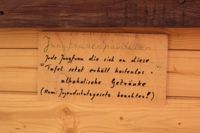 Jungfrauenparkplatz
Jede Jungfrau die sich an diese
Tafel setzt erhält kostenlos
alkoholische Getränke
(Homi: Jugendschutzgesetz beachten!)